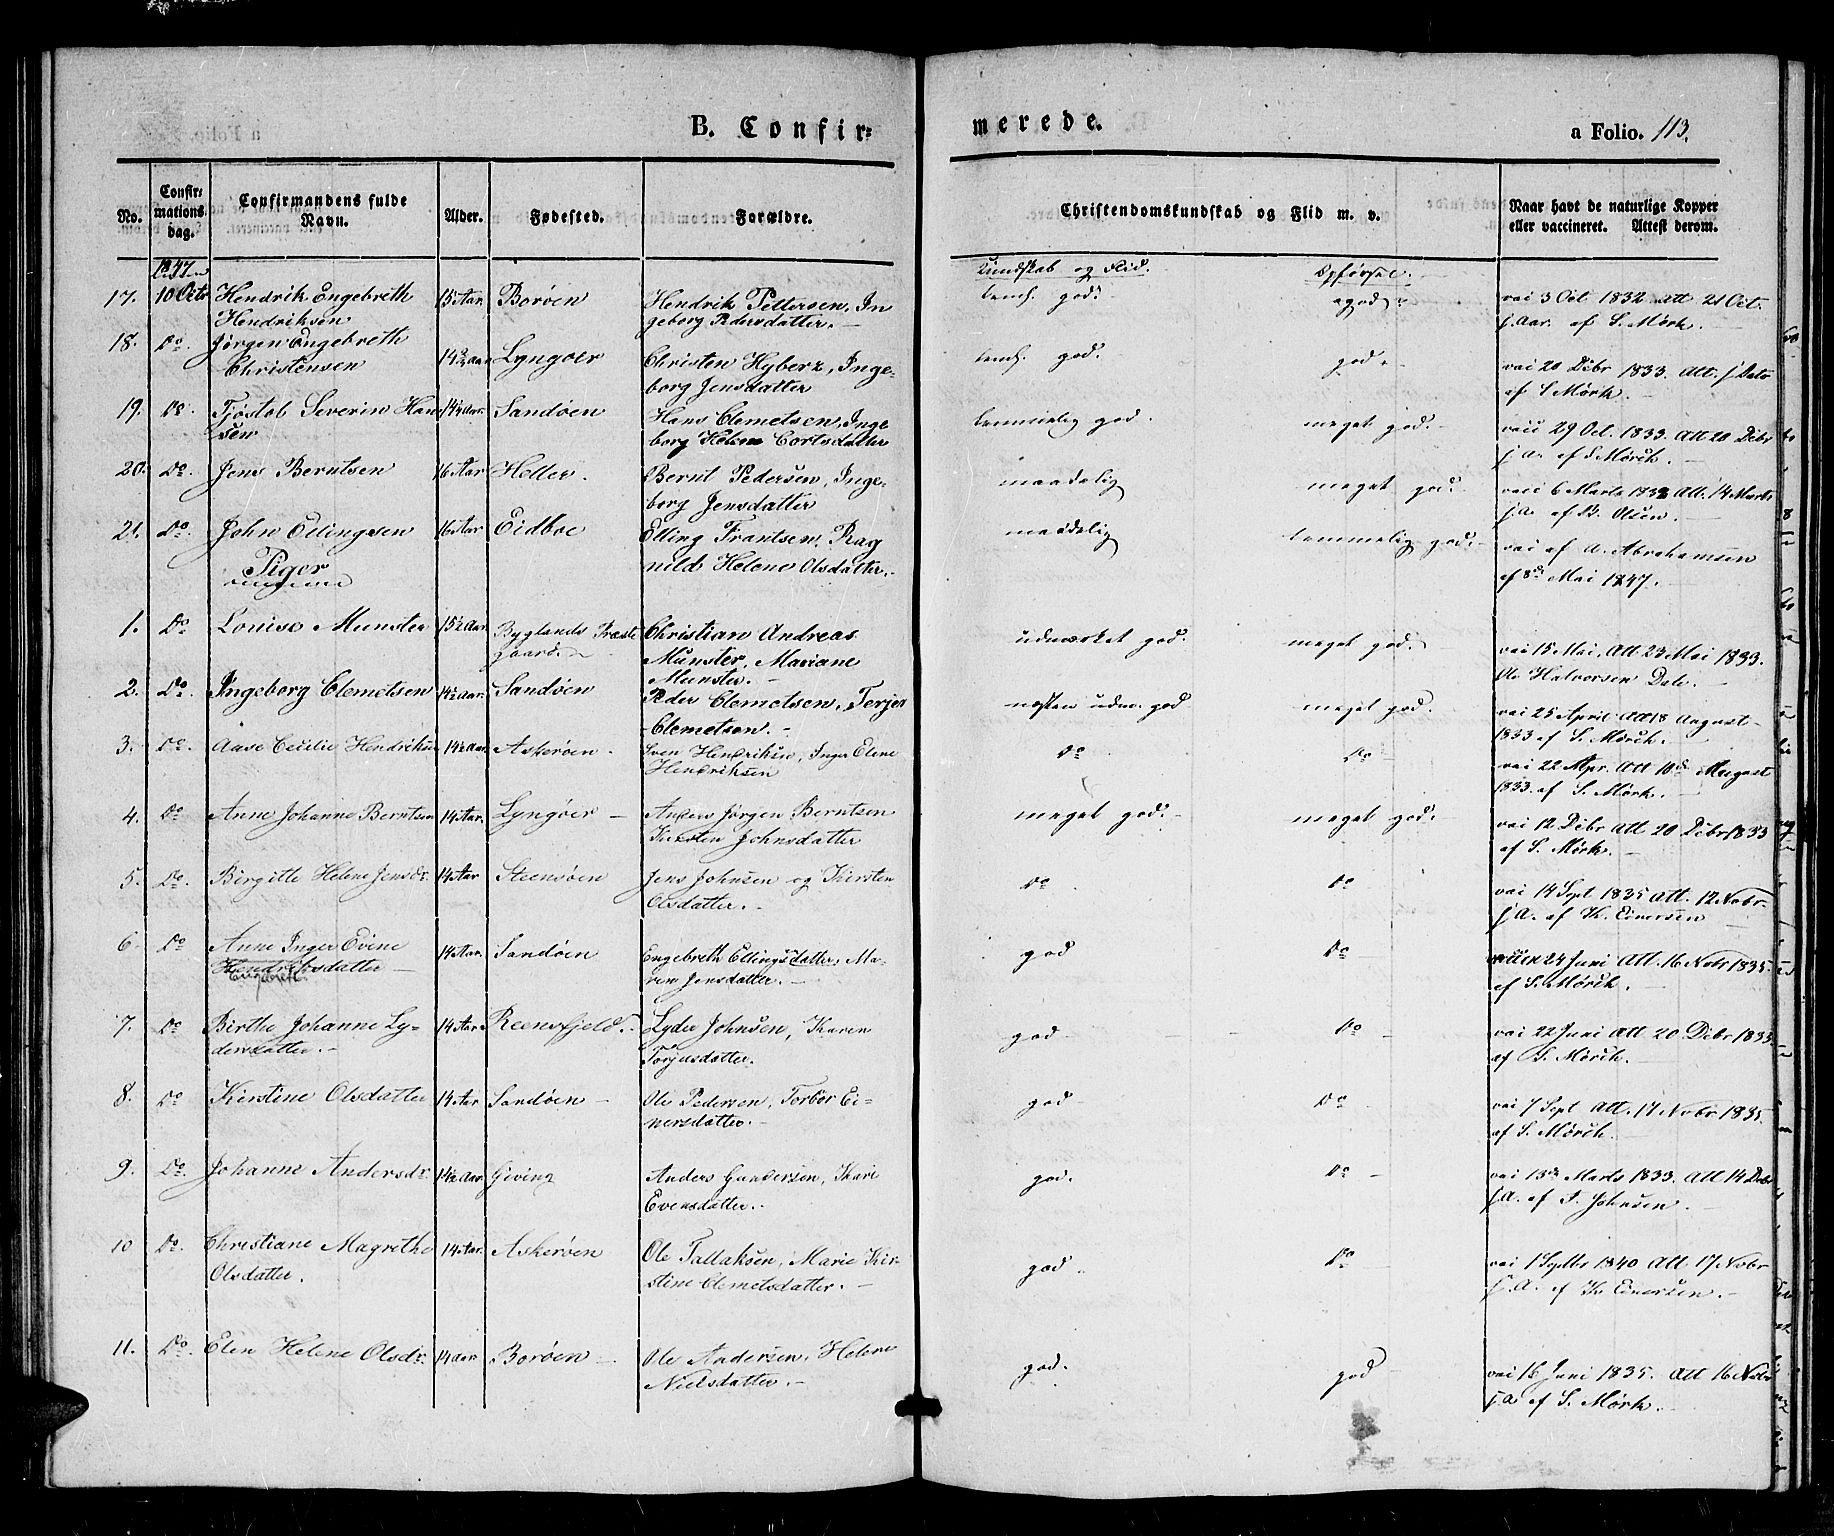 B. Confirmerede. a Folio. 113.
No. | Confirmations dag. | Confirmandens fulde Navn. | Alder. | Fødested. | Forældre. | Christendomskundskab og Flid m. v. | Naar havt de naturlige Kopper eller vaccineret. Attest derom.
1847. | Kundskab og Flid. | Opførsel.
17. | 10 Octr | Hendrik Engebreth Hendriksen | 15 Aar | Borøen | Hendrik Pettersen, Ingeborg Pedersdatter. | teml. god. | god | vai 3 Oct 1832 att 21 Oct. s. Aar. af S. Mørk.
18. | Do. | Jørgen Engebreth Christensen | 14½ Aar | Lyngøer | Christen Hybertz, Ingeborg Jensdatter | teml. god. | god. | vai 20 Debr 1833. Att. s Dato af S Mørk.
19. | Do. | Tjøstol Severin Hansen | 14½ Aar. | Sandøen | Hans Clemetsen, Ingeborg Helene Cortsdatter | temmelig god. | meget god. | vaii 29 Oct. 1833. Att 20 Debr s. A. af S Mørch.
20. | Do. | Jens Berntsen | 16 Aar | Holler. | Bernt Pedersen, Ingeborg Jensdatter | maadelig | meget god. | vaii 6 Marts 1832 Att. 14 Marts s. A. af B. Olsen.
21. | Do. | John Ellingsen | 16 Aar | Eidboe | Elling Frantsen, Ragnild Helene Olsdatter. | maadelig | temmelig god. | vai af A. Abrahamsen af 8de Mai 1847.
Piger
1. | Do | Louise Munster | 15½ Aar | Byglands Præstegaard. | Christian Andreas Munster, Mariane Munster. | udmærket god. | meget god. | vai 15 Mai, Att 23 Mai 1833. Ole Halvorsen Dale.
2. | Do. | Ingeborg Clemetsen | 14½ Aar. | Sandøen | Peder Clemetsen, Terjer Clemetsen. | næsten udm. god | meget god. | vai 25 April Att 18 August 1833 af S. Mørch.
3. | Do. | Aase Cecilie Hendriksen | 14½ Aar. | Askerøen. | Sven Hendriksen, Inger Elene Hendriksen | Do | Do. | vai 22 Apr. Att 10de August 1833. af S. Mørk.
4. | Do | Anne Johanne Berntsen | 14 Aar. | Lyngøer | Anders Jørgen Berntsen Kirsten Johnsdatter | meget god. | meget god. | vai 12 Debr Att 20 Debr 1833 af S. Mørk.
5. | Do. | Birgitte Helene Jensdr. | 14 Aar | Steensøen | Jens Johnsen og Kirsten Olsdatter. | Do | Do | vai 14 Sept 1835 Att. 12 Nobr s. A. af K. Einersen
6. | Do | Anne Inger Evine Hendriksdatter Engebreth. | 14 Aar. | Sandøen | Engebreth Ellingsdatter, Maren Jensdatter. | god | Do | 24 Juni Att. 16 Nobr 1835. af S. Mørch.
7. | Do | Birthe Johanne Lydersdatter. | 14 Aar | Reensfjeld. | Lyder Johnsen, Karen Torjusdatter. | god | Do | vai 22 Juni Att 20 Debr 1833 af S. Mørch.
8. | Do | Kirstine Olsdatter | 14 Aar | Sandøen | Ole Pedersen, Torbor Einersdatter. | god | Do | vai 7 Sept Att. 17 Nobr 1835. af S. Mørch.
9. | Do. | Johanne Andersdr. | 14½ Aar. | Giving | Anders Gundersen, Kari Evensdatter. | god. | Do | vai 13de Marts 1833. Att 14 Debr s. A. af T. Johnsen.
10 | Do. | Christiane Magrethe Olsdatter. | 14 Aar. | Askerøen | Ole Tallaksen, Marie Kirstine Clemetsdatter. | god. | Do | vai 1 Septbr 1840 Att 17 Nobr s. A. af K Einersen.
11. | Do. | Elen Helene Olsdr. | 14 Aar | Borøen | Ole Andersen, Helene Nielsdatter. | god. | god | vai 16 Juni 1835. Att 16 Nobr s. A. af S. Mørk.